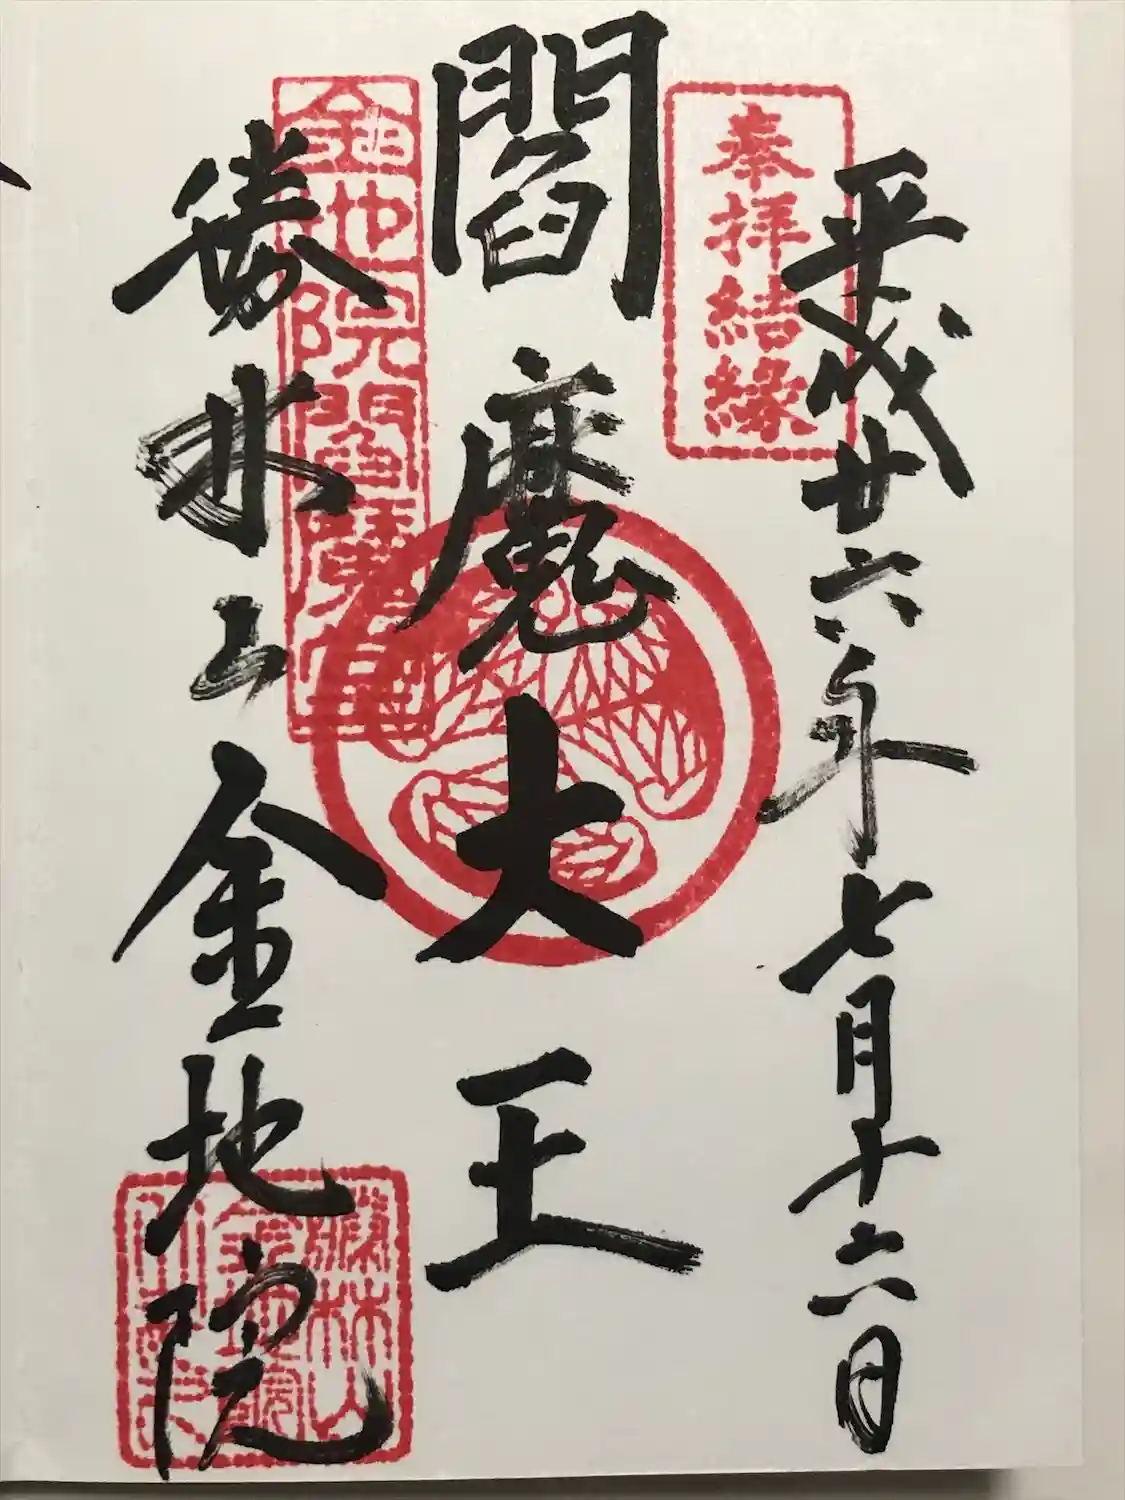 平成廿六年七月十六日
奉拝結縁
閻魔大王
金地院閻魔堂
勝林山金地院
勝林山
金地院